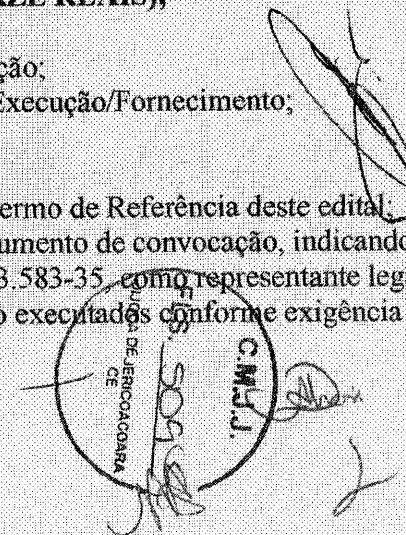 ção;
Execução/Fornecimento;
ermo de Referência deste edital;
umento de convocação, indicando
3.583-35, como representante leg
o executados conforme exigência
C.M.J.J.
FLS.
DE JERICOACOARA
CE